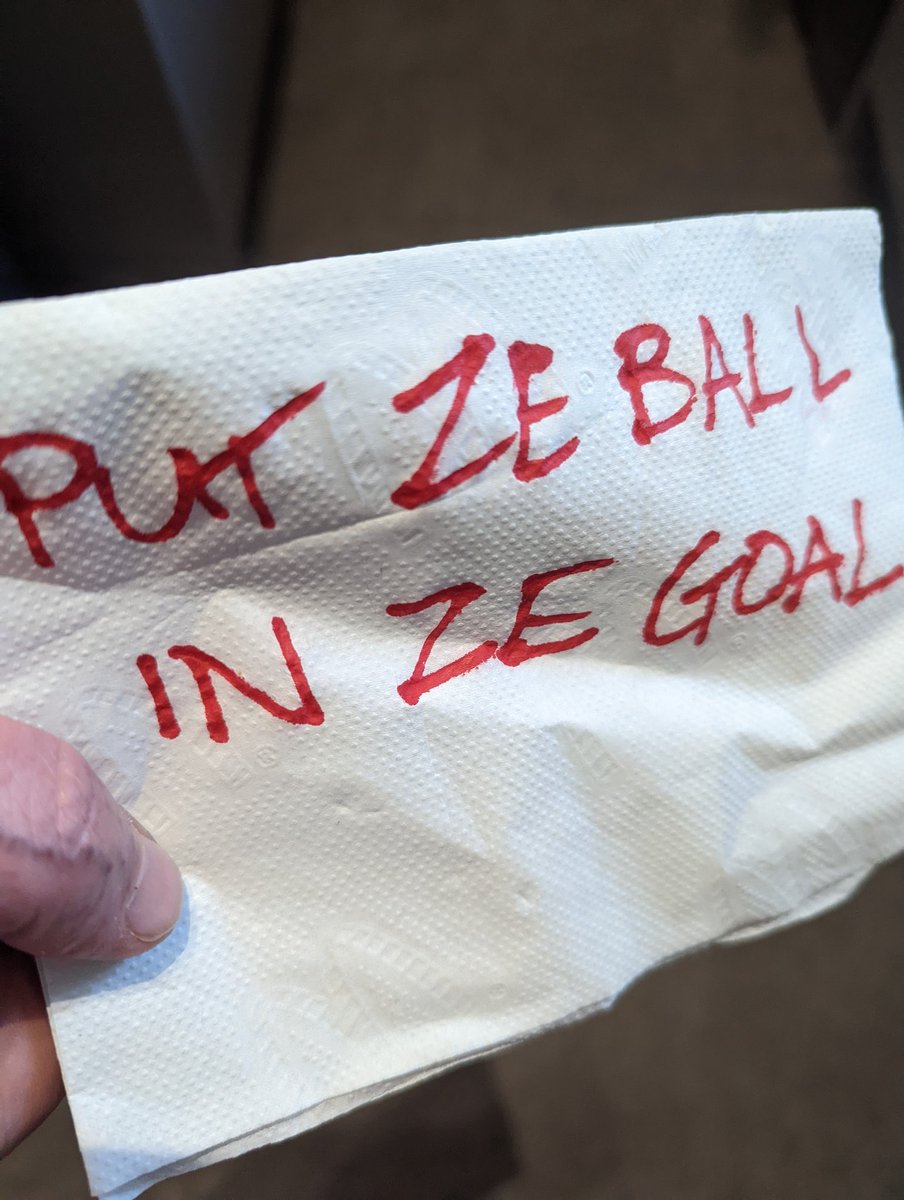 PUT ZE BALL
IN ZE GOAL